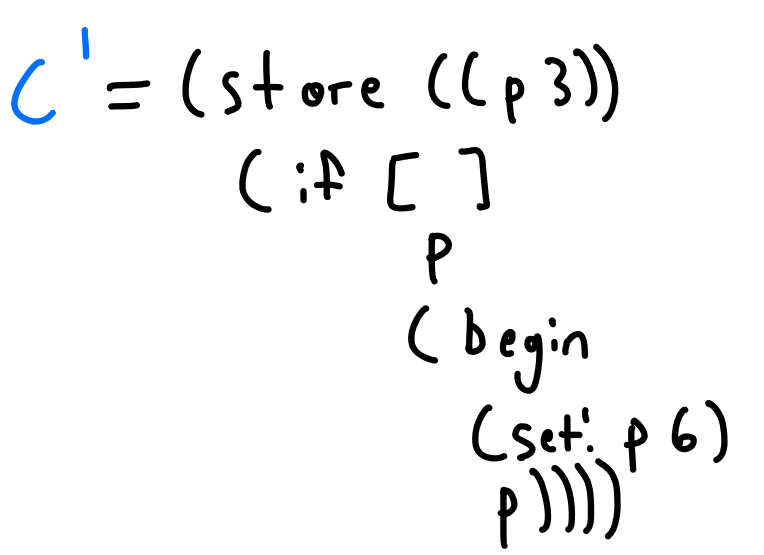 C' = (store ((p 3))
(if [ ]
p
(begin
(set! p 6)
p))))